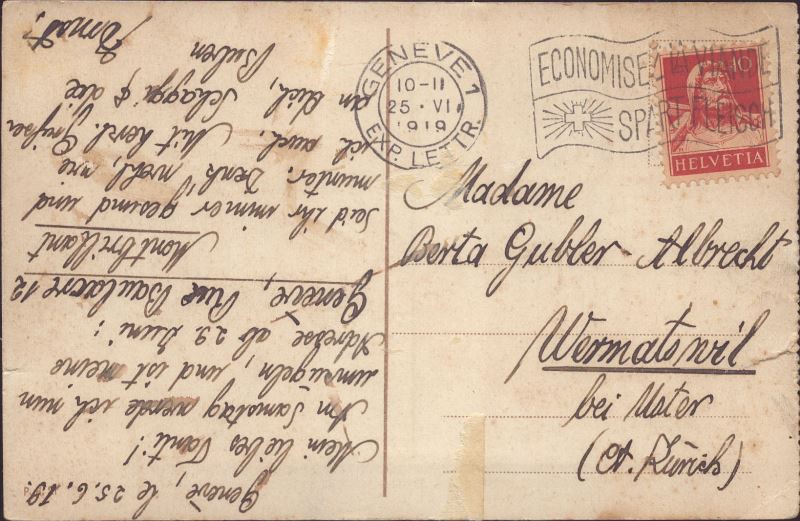 Genève, le 25.6.19.
Mein liebes Tanti!
Am Samstag werde ich nun
umzügeln, und ist meine
Adresse ab 29. Juni:
Genève, Rue Baulacre 12
Montbrillant
Seid ihr immer gesund und
munter. Denk' wohl, wie
ich auch. Mit herzl. Grüssen
an dich, Schaggi & die
Buben
Ernst.
GENÈVE 1
10-11
25. VI
1919
EXP. LETTR.
ECONOMISEZ LA VIANDE
SPART FLEISCH
10
HELVETIA
Madame
Berta Gubler-Albrecht
Wermatswil
bei Uster
(Ct. Zürich)